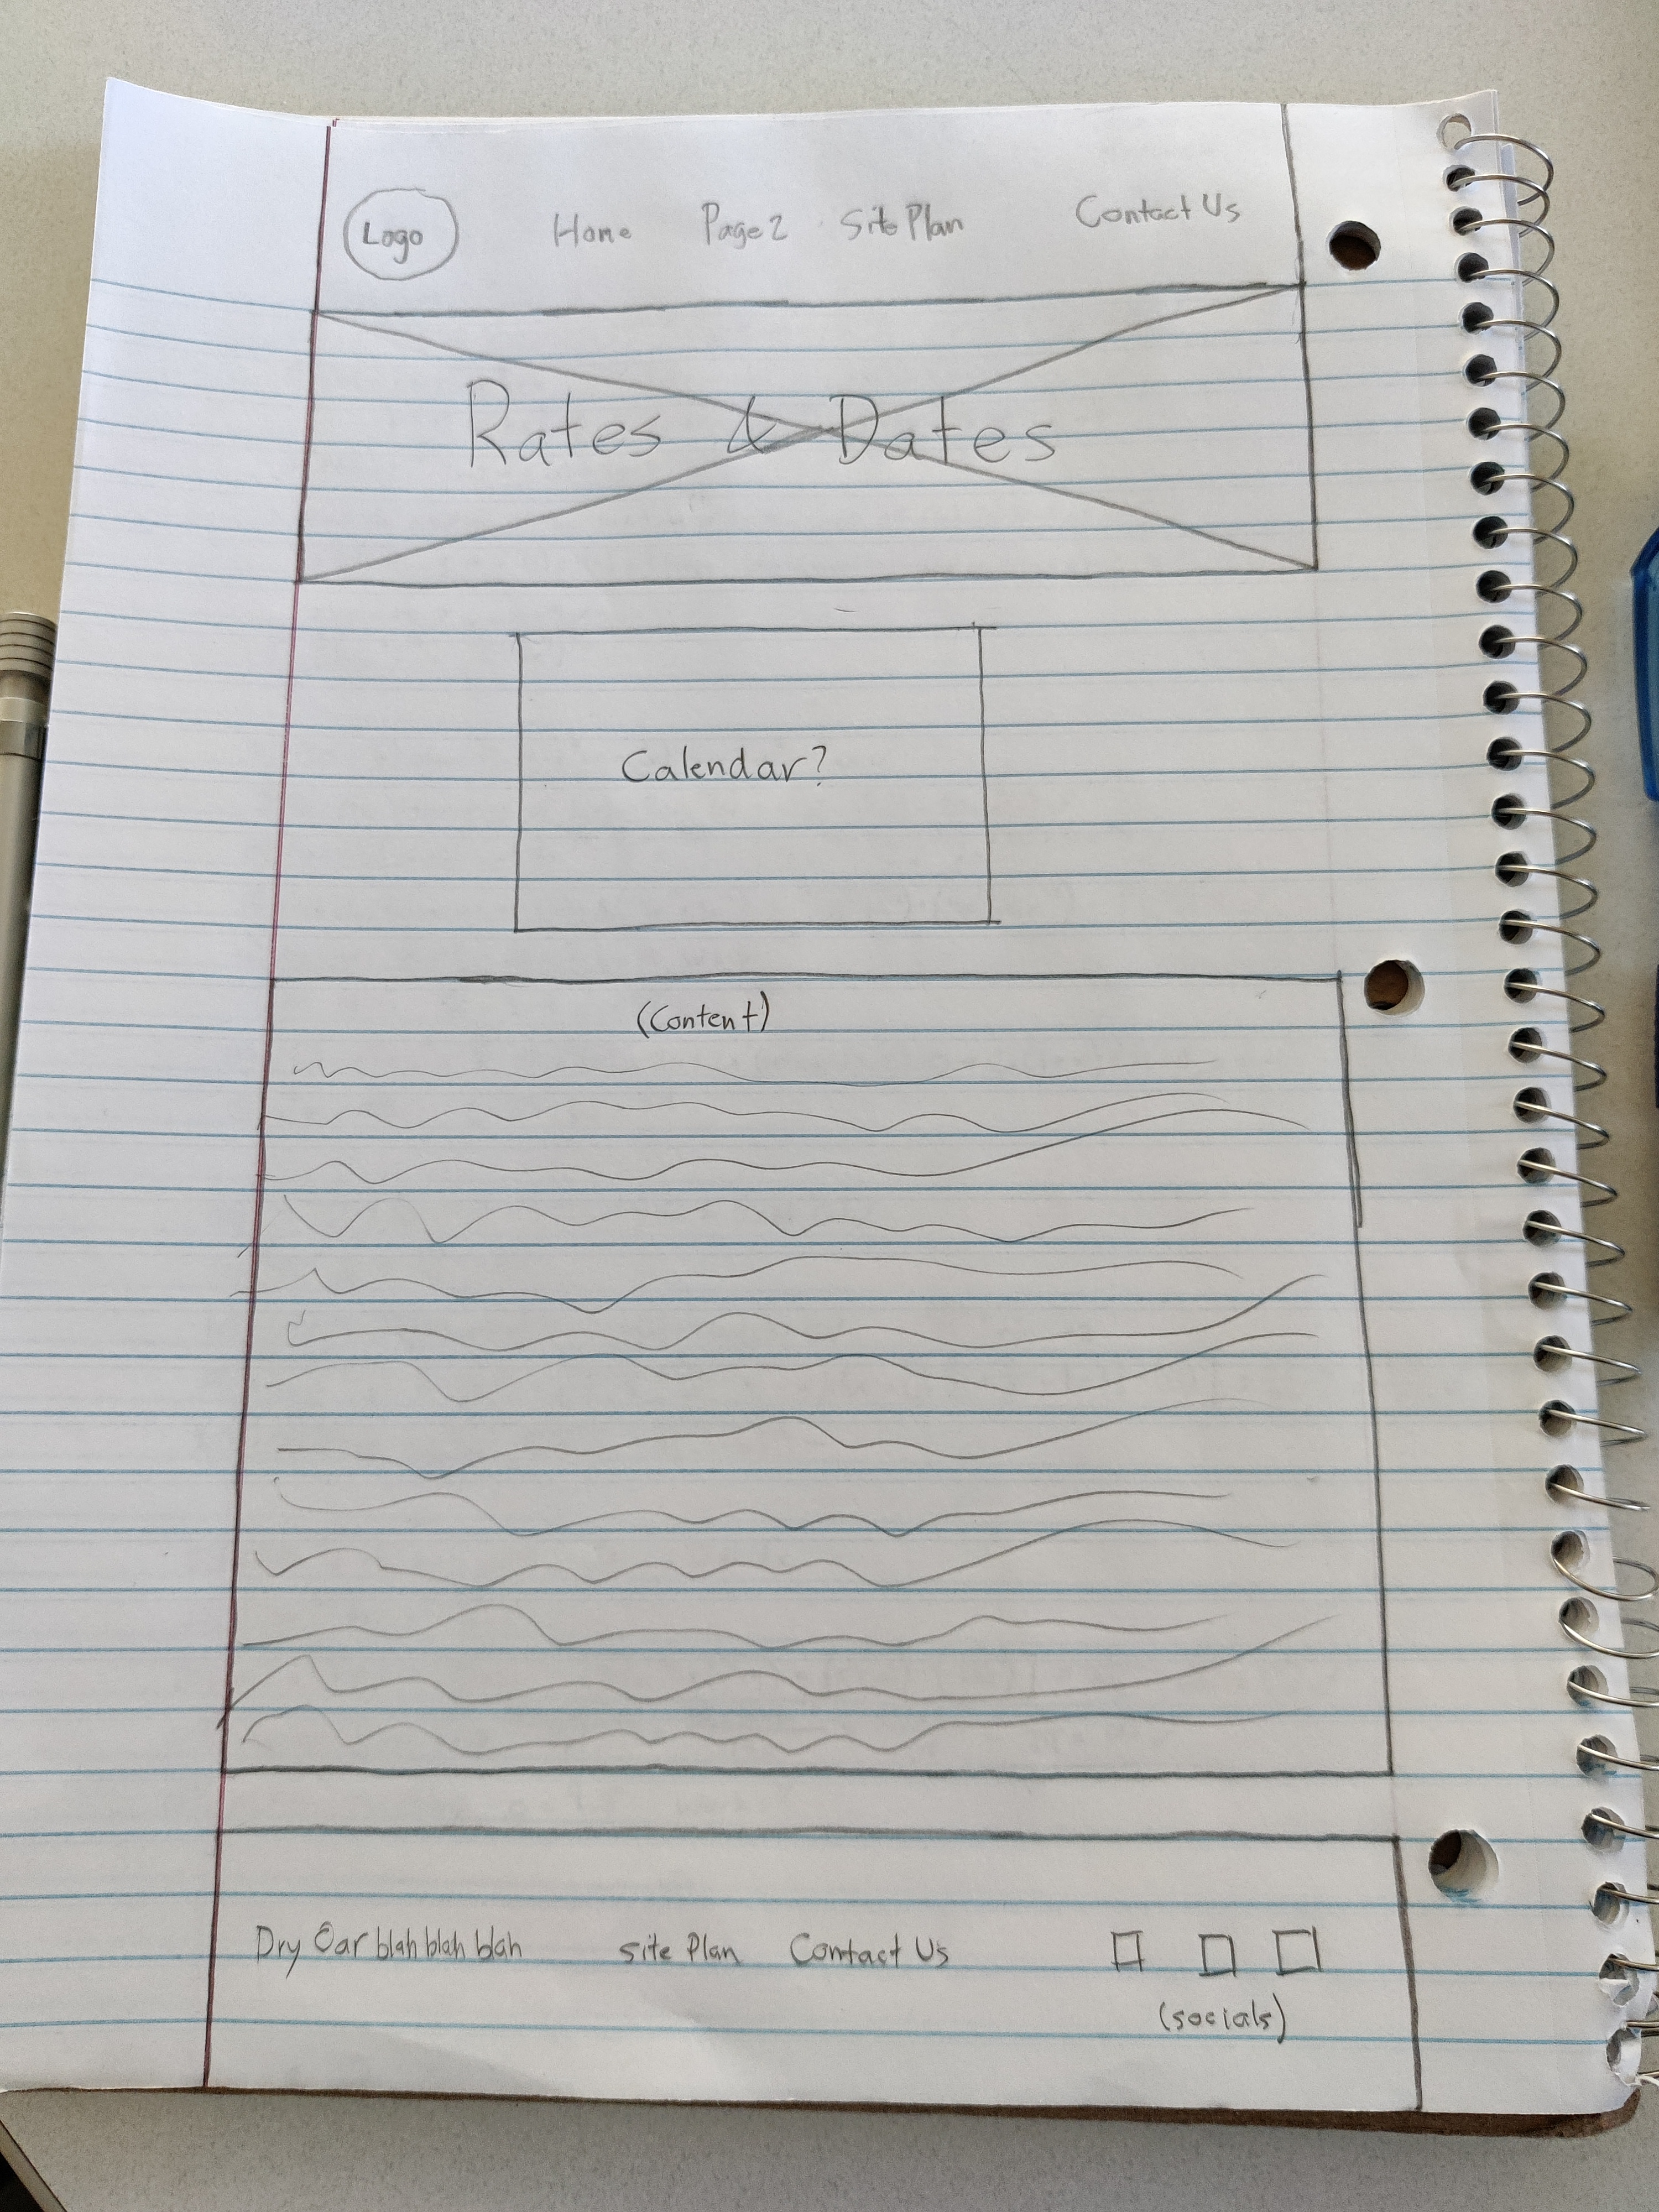 Logo Home Page 2 Site Plan Contact Us
Rates & Dates
Calendar?
(Content)
Dry Oar blah blah blah site Plan Contact Us
(socials)